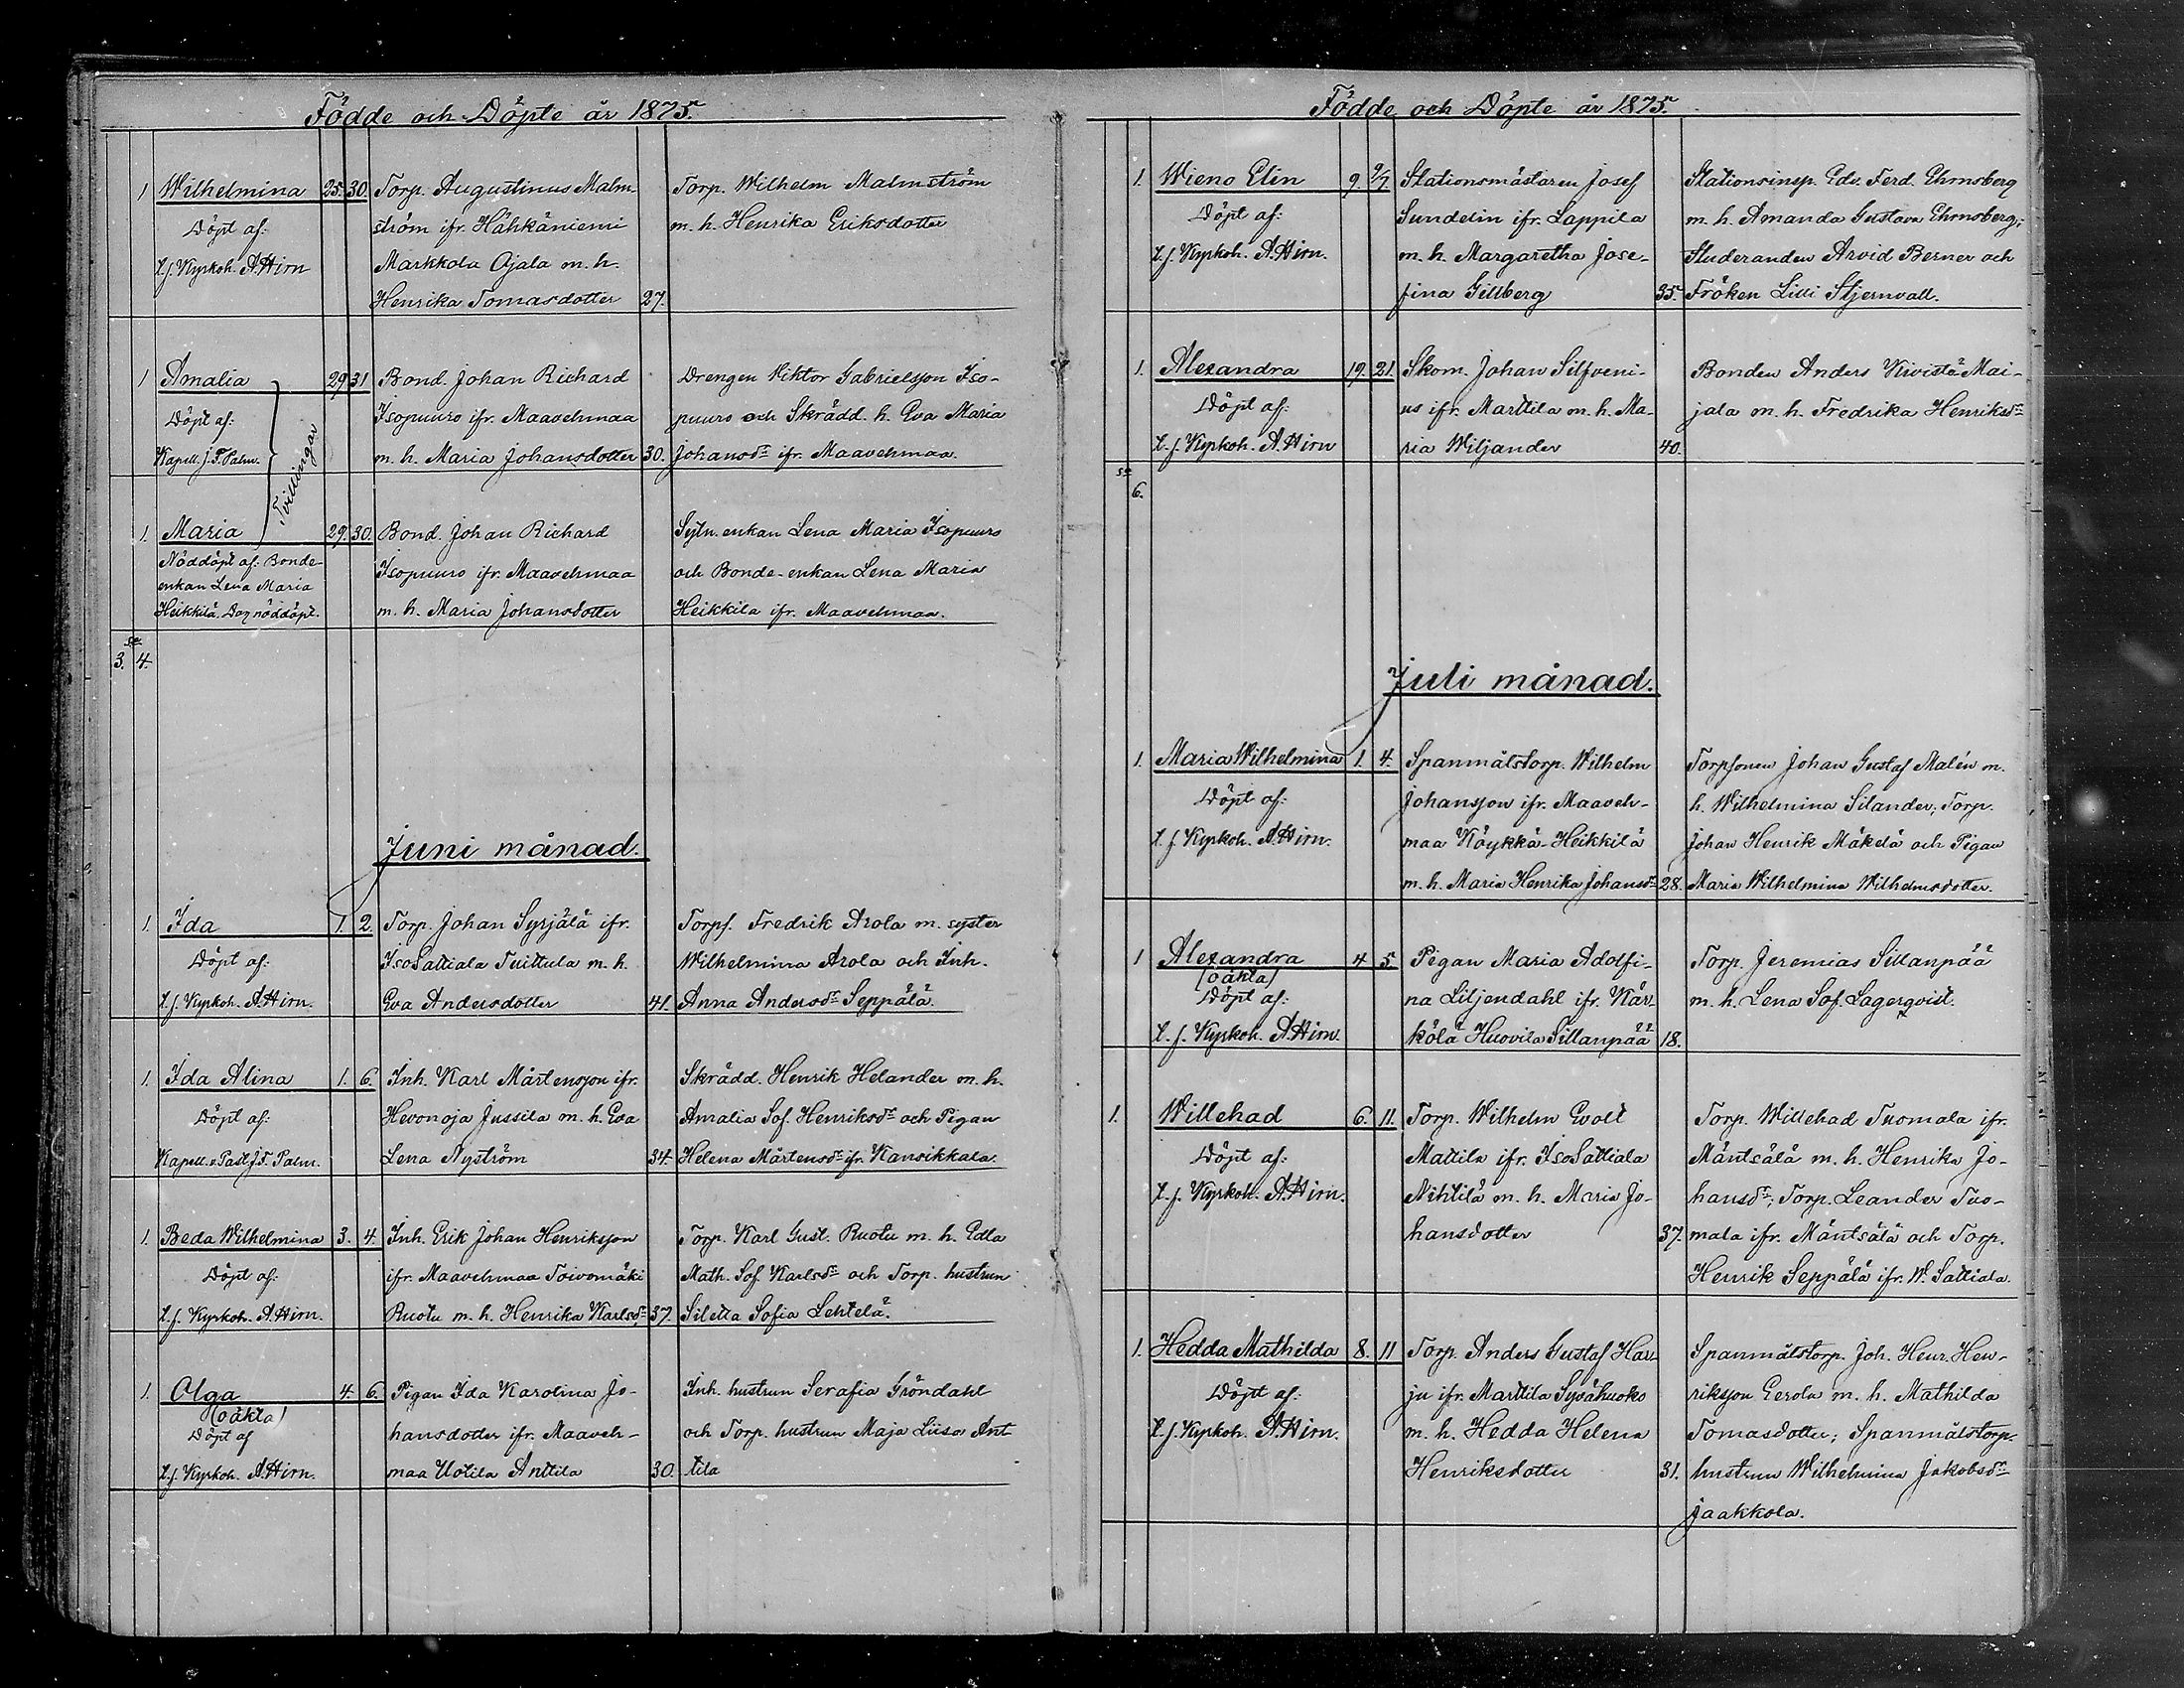 Födde och Döpte år 1875.
1 Wilhelmina 25. 30. Torp. Augustinus Malm- Torp. Wilhelm Malmström
Döpt af: ström ifr. Hähkäniemi m. h. Henrika Eriksdotter
t.f. Kyrkoh. A. Hirn Markkola Ojala m. h.
Henrika Tomasdotter 27.
1 Amalia 29 31 Bond. Johan Richard Drengen Viktor Gabrielsson Iso-
Döpt af: Isopuuro ifr. Maavehmaa puuro och Skrädd. h. Eva Maria
Kapell. J. F. Palm. m. h. Maria Johansdotter 30. Johansdr ifr. Maavehmaa.
Tvillingar
1. Maria 29. 30. Bond. Johan Richard Sytn. enkan Lena Maria Isopuuro
Nöddöpt af: Bonde- Isopuuro ifr. Maavehmaa och Bonde-enkan Lena Maria
enkan Lena Maria
Heikkilä. Dag nöddöpt. m. h. Maria Johansdotter Heikkilä ifr. Maavehmaa.
Sa
3. 4.
Juni månad.
1. Ida 1. 2. Torp. Johan Syrjälä ifr. Torps. Fredrik Arola m. syster
Döpt af: IsoSattiala Tuittula m. h. Wilhelmina Arola och Inh.
t.f. Kyrkoh. A. Hirn. Eva Andersdotter 41. Anna Andersdr Seppälä.
1. Ida Alina 1. 6. Inh. Karl Mårtensson ifr. Skrädd. Henrik Helander m. h.
Döpt af: Hevonoja Jussila m. h. Eva Amalia Sof. Henriksdr och Pigan
Kapell. v. Past. J. F. Palm. Lena Nyström 34. Helena Mårtensdr ifr. Kansikkala.
1. Beda Wilhelmina 3. 4. Inh. Erik Johan Henriksson Torp. Karl Gust. Ruotu m. h. Edla
Döpt af: ifr. Maavehmaa Toivomäki Math. Sof. Karlsdr och Torp. hustrun
t.f. Kyrkoh. A. Hirn. Ruotu m. h. Henrika Karlsdr 37. Siletta Sofia Lehtelä.
1. Olga 4. 6. Pigan Ida Karolina Jo- Inh. hustrun Serafia Gröndahl
(oäkta)
Döpt af hansdotter ifr. Maaveh- och Torp. hustrun Maja Liisa Ant
t.f. Kyrkoh. A. Hirn. maa Uotila Anttila 30. tila
Födde och Döpte år 1875.
1. Wieno Elin 9. 9/7 Stationsmästaren Josef Stationsinsp. Edv. Ferd. Ehrnsberg
Döpt af: Sundelin ifr. Lappila m. h. Amanda Gustava Ehrnsberg;
t.f. Kyrkoh. A. Hirn. m. h. Margaretha Jose- Studeranden Arvid Berner och
fina Gillberg 35. Fröken Lilli Stjernvall.
1. Alexandra 19. 21. Skom. Johan Silfveni- Bonden Anders Kivistö Mai-
Döpt af: us ifr. Marttila m. h. Ma- jala m. h. Fredrika Henriksdr
t.f. Kyrkoh. A. Hirn ria Wiljander 40.
Sa
6.
Juli månad.
1. Maria Wilhelmina 1. 4. Spanmålstorp. Wilhelm Torpsonen Johan Gustaf Malén m.
Döpt af: Johansson ifr. Maaveh- h. Wilhelmina Silander; Torp.
t.f. Kyrkoh. A. Hirn. maa Köykkä-Heikkilä Johan Henrik Mäkelä och Pigan
m. h. Maria Henrika Johansdr 28. Maria Wilhelmina Wilhelmsdotter.
1 Alexandra 4 5. Pigan Maria Adolfi- Torp. Jeremias Sillanpää
(oäkta)
Döpt af: na Liljendahl ifr. Kär- m. h. Lena Sof. Lagerqvist.
t.f. Kyrkoh. A. Hirn. kölä Huovila Sillanpää 18.
1. Willehad 6. 11. Torp. Wilhelm Evolt Torp. Willehad Tuomala ifr.
Döpt af: Mattila ifr. IsoSattiala Mäntsälä m. h. Henrika Jo-
t.f. Kyrkoh. A. Hirn. Nihtilä m. h. Maria Jo- hansdr; Torp. Leander Tuo-
hansdotter 37. mala ifr. Mäntsälä och Torp.
Henrik Seppälä ifr. W. Sattiala.
1. Hedda Mathilda 8. 11 Torp. Anders Gustaf Har- Spanmålstorp. Joh. Henr. Hen-
Döpt af: ju ifr. Marttila Syvähuoko riksson Eerola m. h. Mathilda
t.f. Kyrkoh. A. Hirn. m. h. Hedda Helena Tomasdotter; Spanmålstorp.
Henriksdotter 31. hustrun Wilhelmina Jakobsdr
Jaakkola.